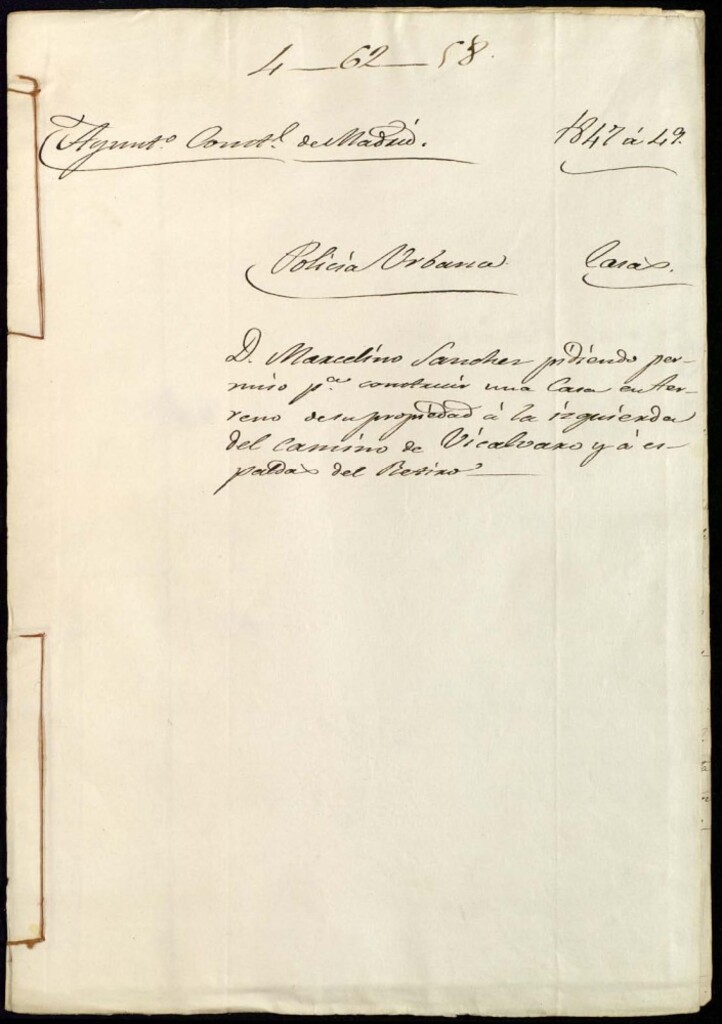 4—62—58.
Ayunt.º Const.l de Madrid. 1847 á 49.
Policia Urbana Casas.
D. Marcelino Sanchez pidiendo per-
miso p.ª construir una Casa en ter-
reno de su propiedad á la izquierda
del camino de Vicalvaro y á es-
paldas del Retiro—